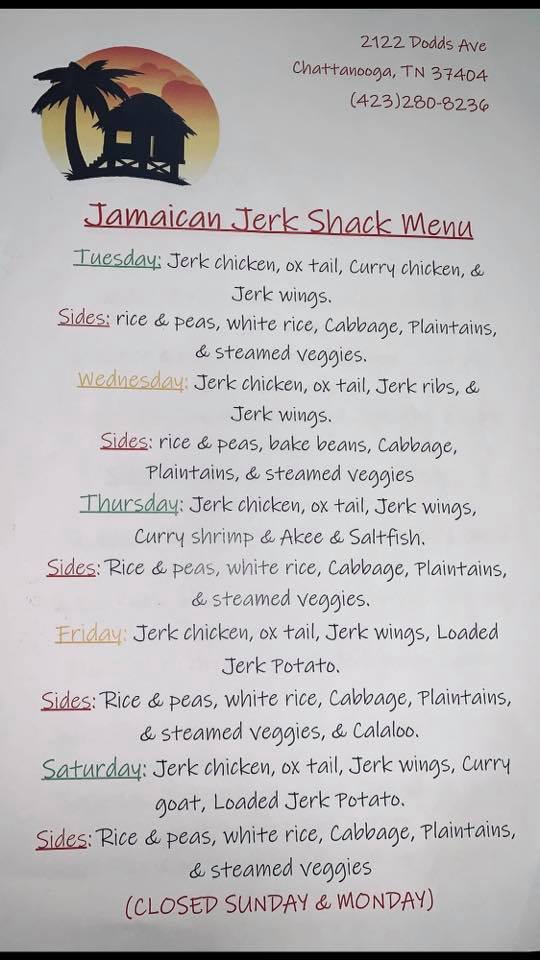 2122 Dodds Ave
Chattanooga, TN 37404
(423)280-8236
Jamaican Jerk Shack Menu
Tuesday: Jerk chicken, ox tail, Curry chicken, &
Jerk wings.
Sides: rice & peas, white rice, Cabbage, Plaintains,
& steamed veggies.
Wednesday: Jerk chicken, ox tail, Jerk ribs, &
Jerk wings.
Sides: rice & peas, bake beans, Cabbage,
Plaintains, & steamed veggies
Thursday: Jerk chicken, ox tail, Jerk wings,
Curry shrimp & Akee & Saltfish.
Sides: Rice & peas, white rice, Cabbage, Plaintains,
& steamed veggies.
Friday: Jerk chicken, ox tail, Jerk wings, Loaded
Jerk Potato.
Sides: Rice & peas, white rice, Cabbage, Plaintains,
& steamed veggies, & Calaloo.
Saturday: Jerk chicken, ox tail, Jerk wings, Curry
goat, Loaded Jerk Potato.
Sides: Rice & peas, white rice, Cabbage, Plaintains,
& steamed veggies
(CLOSED SUNDAY & MONDAY)